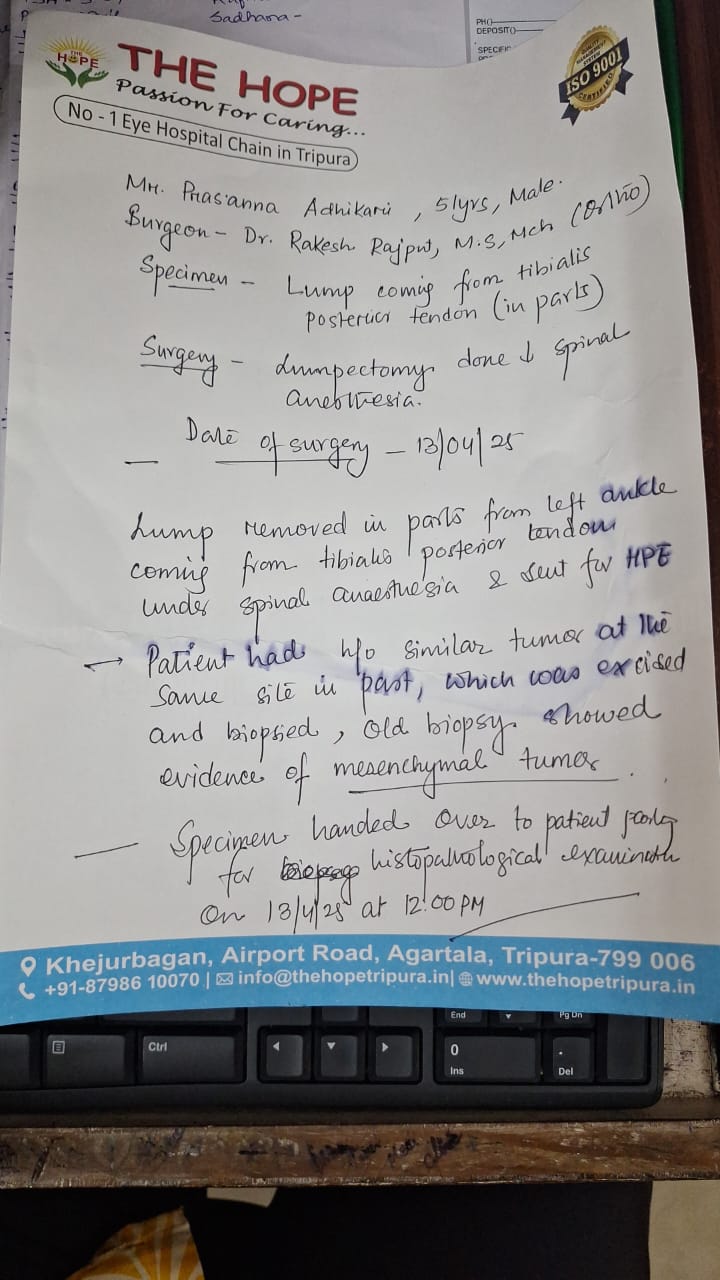 Sadhana -
PH()
DEPOSIT()
SPECIFIC
THE HOPE
THE HOPE
Passion For Caring...
No - 1 Eye Hospital Chain in Tripura
ISO 9001
CERTIFIED
Mr. Prasanna Adhikari, 51yrs, Male.
Surgeon - Dr. Rakesh Rajput, M.S, Mch (Ortho)
Specimen - Lump coming from tibialis
posterior tendon (in parts)
Surgery - Lumpectomy done ↓ spinal
anesthesia.
— Date of surgery - 13/04/25
Lump removed in parts from left ankle
coming from tibialis posterior tendon
under spinal anaesthesia & sent for HPE
→ Patient had h/o similar tumor at the
same site in past, which was excised
and biopsied, old biopsy showed
evidence of mesenchymal tumor.
— Specimen handed over to patient party
for histopathological examination
on 13/4/25 at 12:00 PM
Khejurbagan, Airport Road, Agartala, Tripura-799 006
+91-87986 10070 | info@thehopetripura.in | www.thehopetripura.in
End
Pg Dn
Ctrl
0
Ins
.
Del